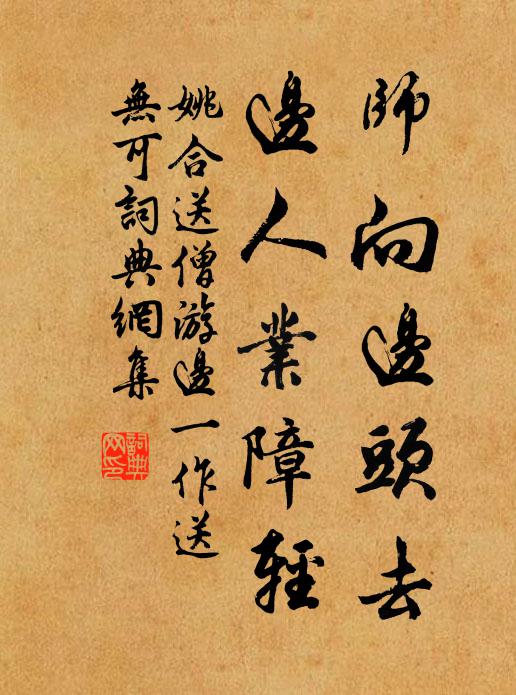 師向邊頭去
邊人業障輕
姚合送僧游邊一作送
無可詞典網集
詞典
网印